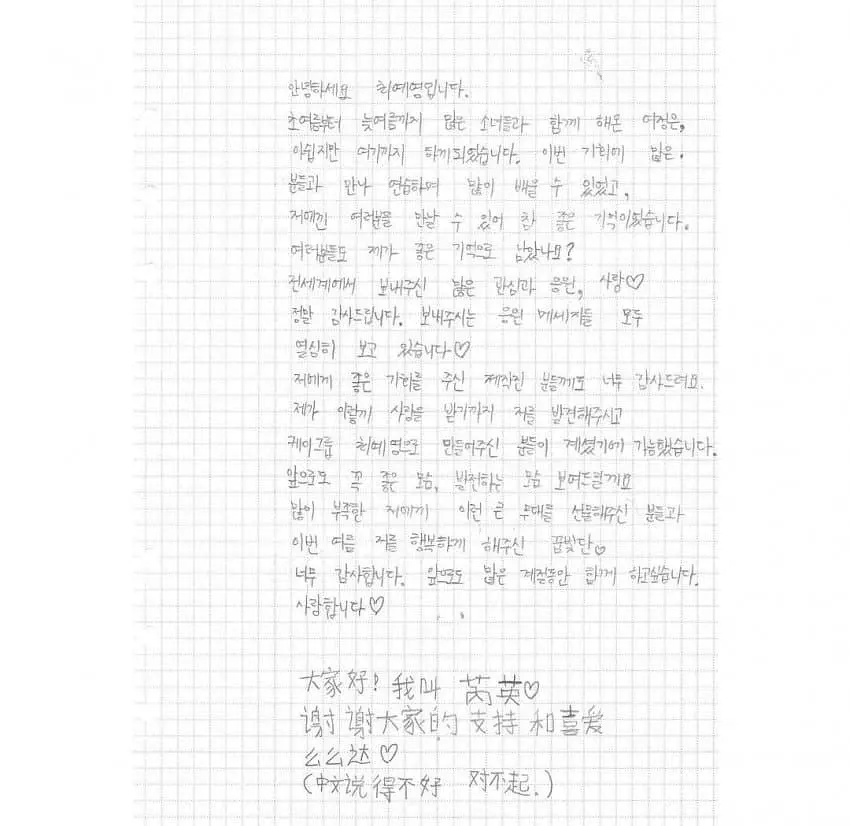 안녕하세요 최예영입니다.
초여름부터 늦여름까지 많은 소녀들과 함께 해온 여정은,
아쉽지만 여기까지 하게되었습니다. 이번 기회에 많은
분들과 만나 연습하며 많이 배울 수 있었고,
저에겐 여러분을 만날 수 있어 참 좋은 기억이였습니다.
여러분들도 제가 좋은 기억으로 남았나요?
전세계에서 보내주신 많은 관심과 응원, 사랑♡
정말 감사드립니다. 보내주시는 응원 메세지들 모두
열심히 보고 있습니다♡
저에게 좋은 기회를 주신 제작진 분들께도 너무 감사드려요.
제가 이렇게 사랑을 받기까지 저를 발견해주시고
케이그룹 최예영으로 만들어주신 분들이 계셨기에 가능했습니다.
앞으로도 꼭 좋은 모습, 발전하는 모습 보여드릴게요
많이 부족한 저에게 이런 큰 무대를 선물해주신 분들과
이번 여름 저를 행복하게 해주신 꿈빛단♡
너무 감사합니다. 앞으로도 많은 계절동안 함께 하고싶습니다.
사랑합니다♡
大家好! 我叫 芮英♡
谢谢大家的支持和喜爱
么么达♡
(中文说得不好 对不起.)